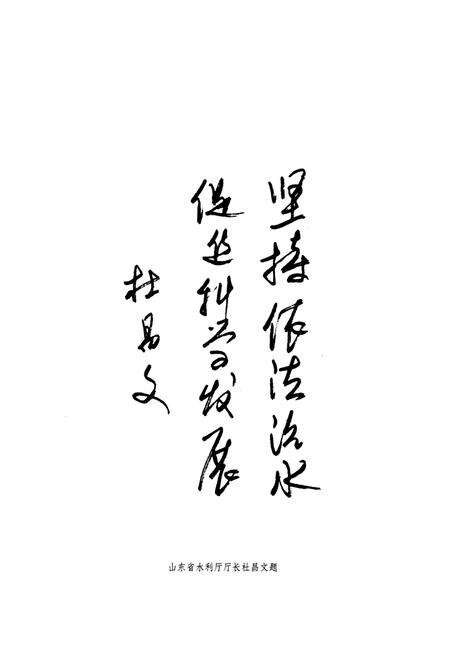 坚持依法治水
促进科学发展
杜昌文
山东省水利厅厅长杜昌文题